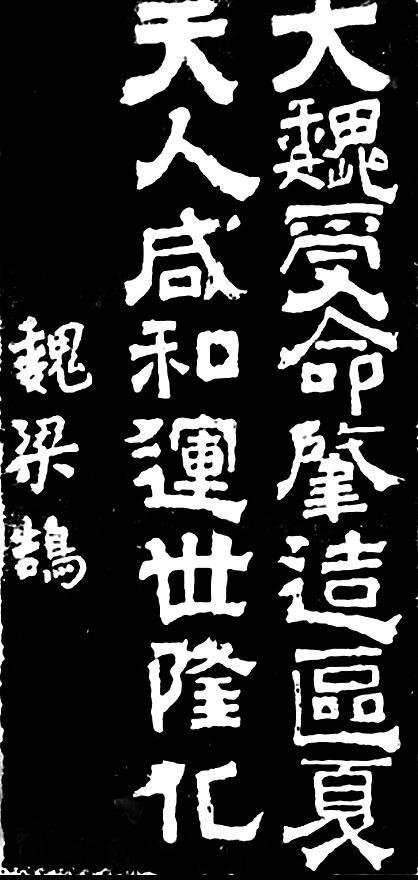 大魏受命肇造區夏
天人咸和運世隆化
魏梁鵠